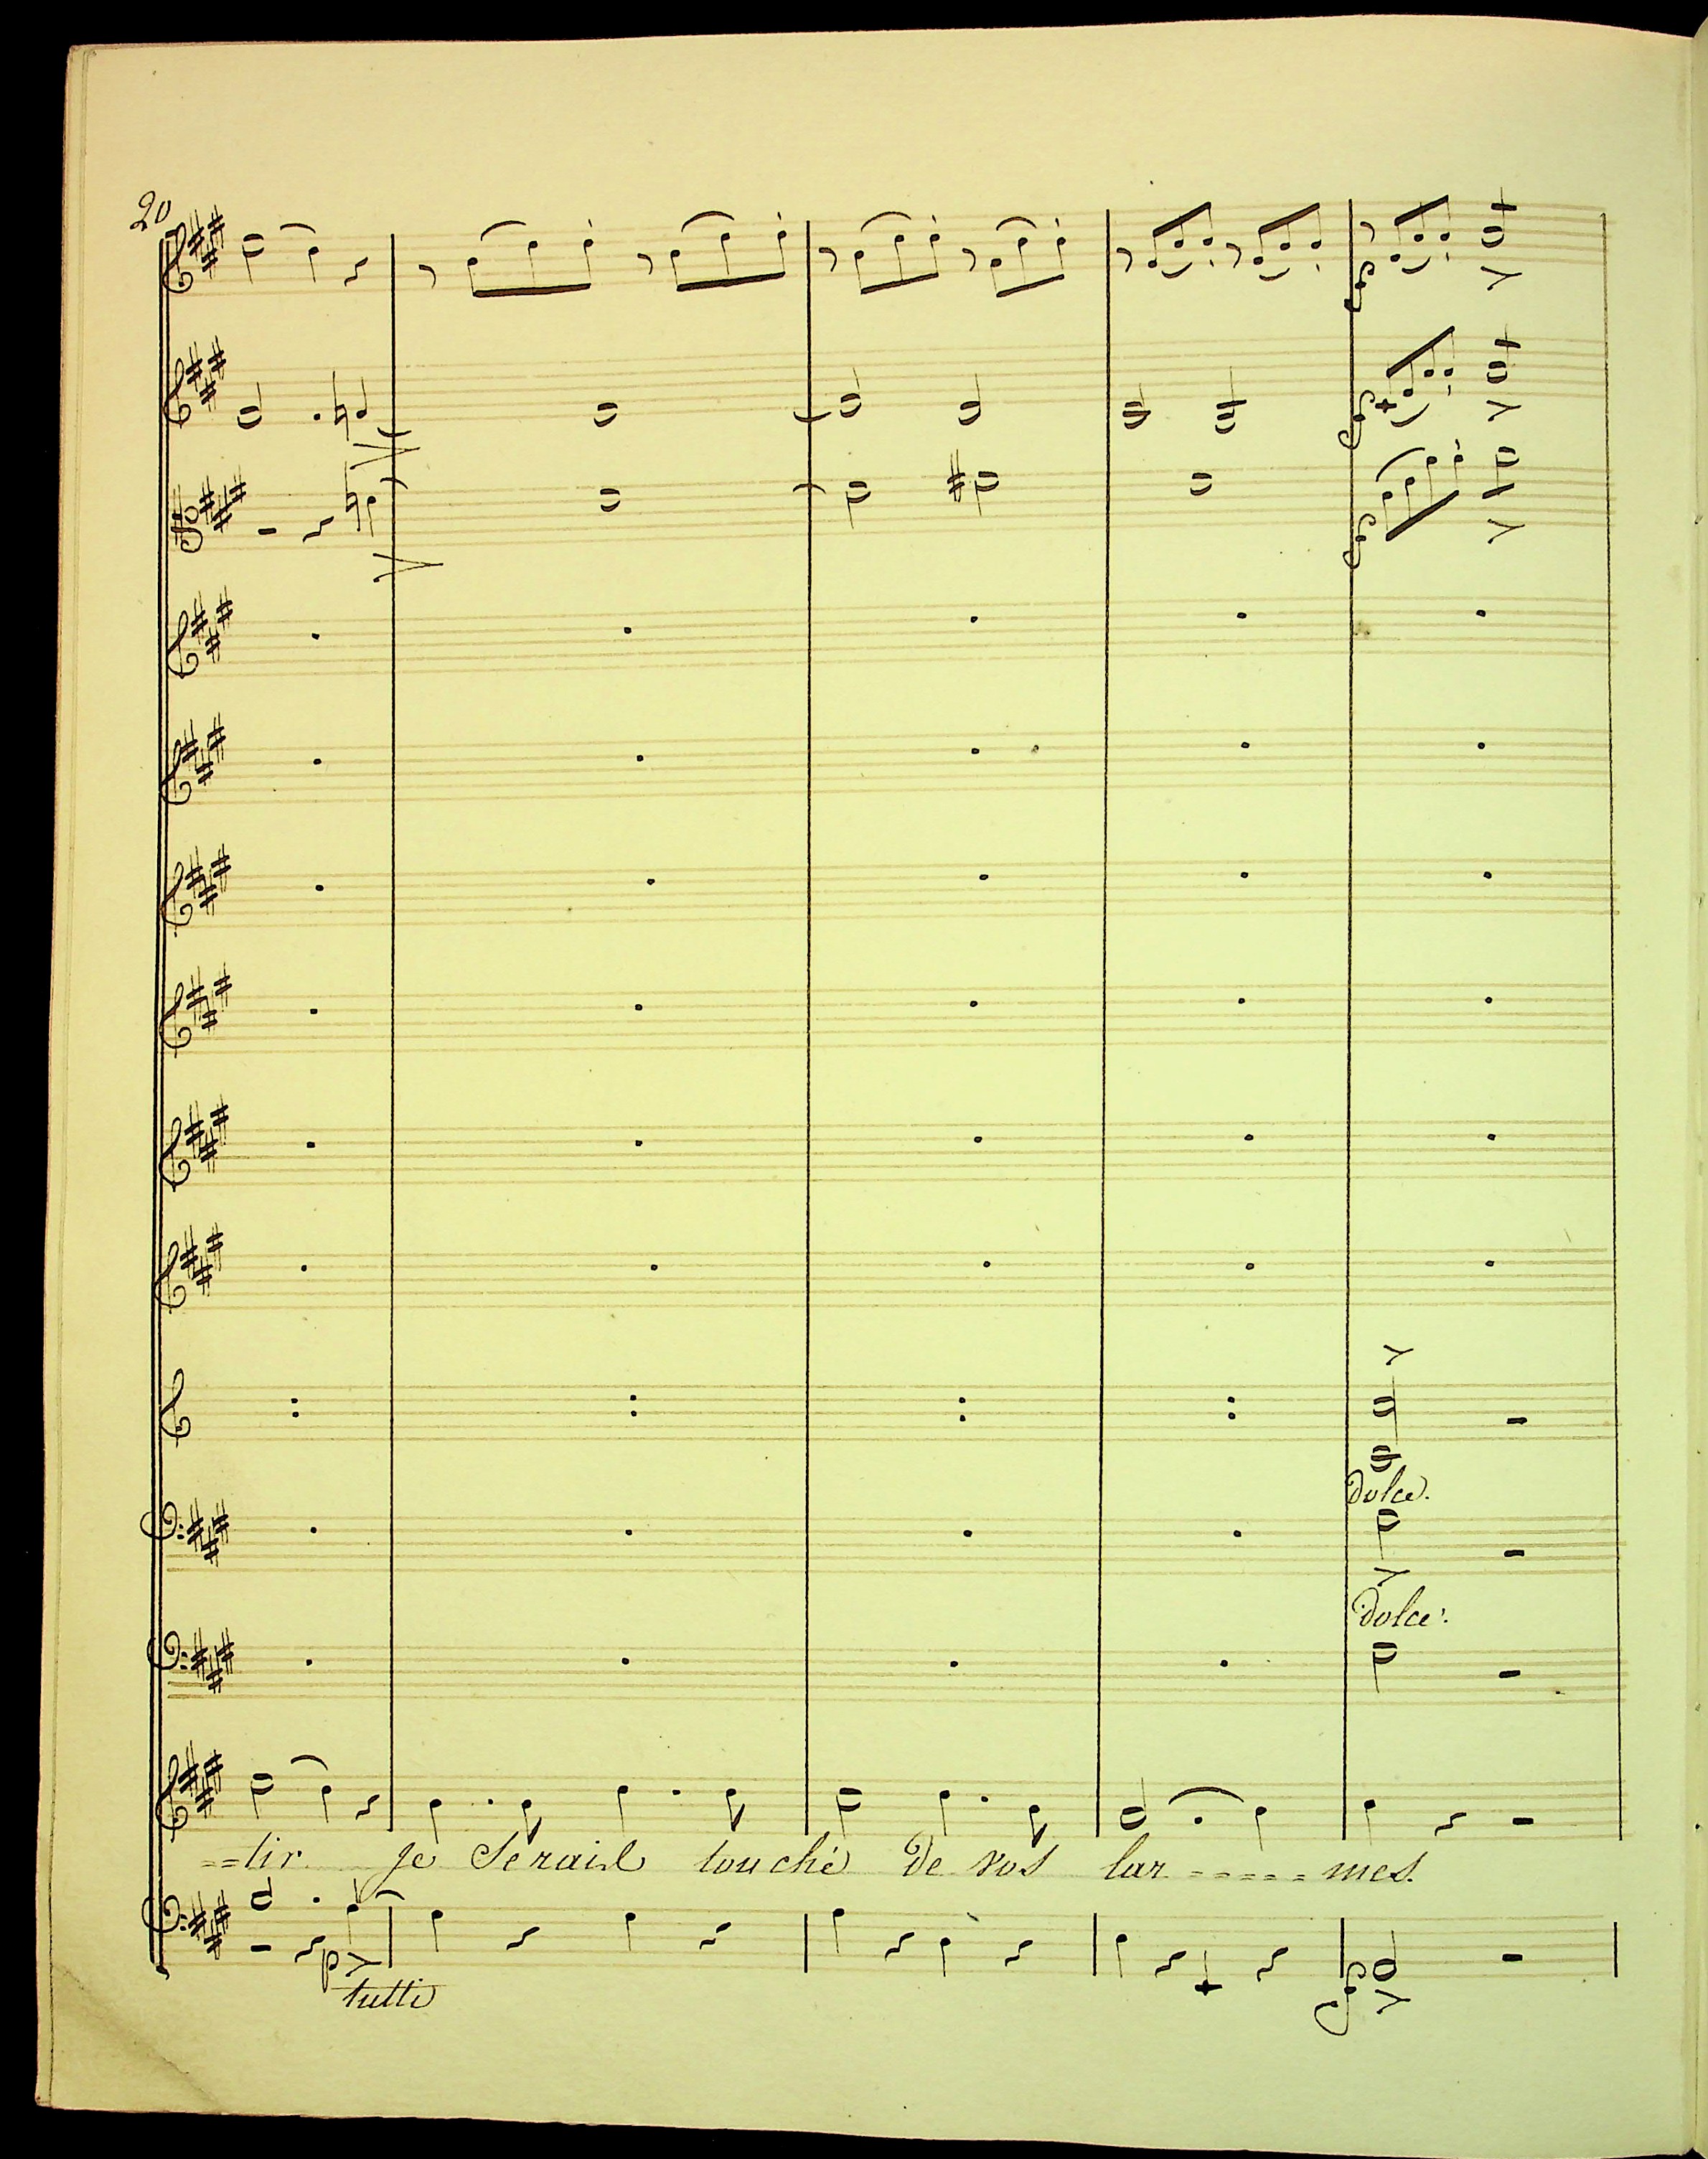 20
Dolce.
Dolce.
==tir je Serais touché De vos lar-----mes.
p
tutti